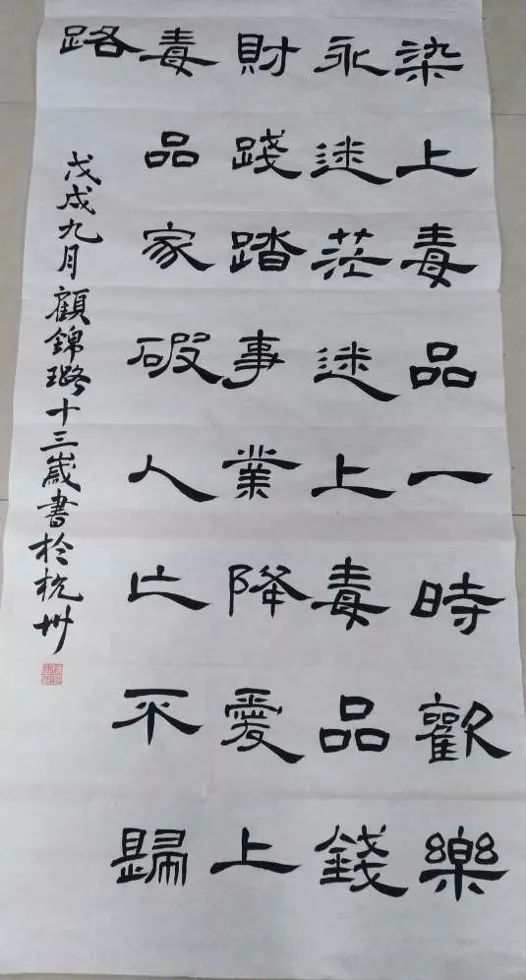 染上毒品一時歡樂
永迷茫迷上毒品錢
財踐踏事業降愛上
毒品家破人亡不歸
路
戊戌九月顧錦璐十三歲書於杭州